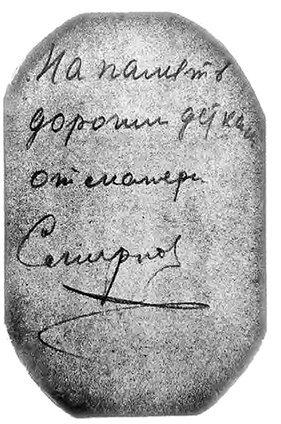 На память
дорогим деткам
от матери
Смирнов